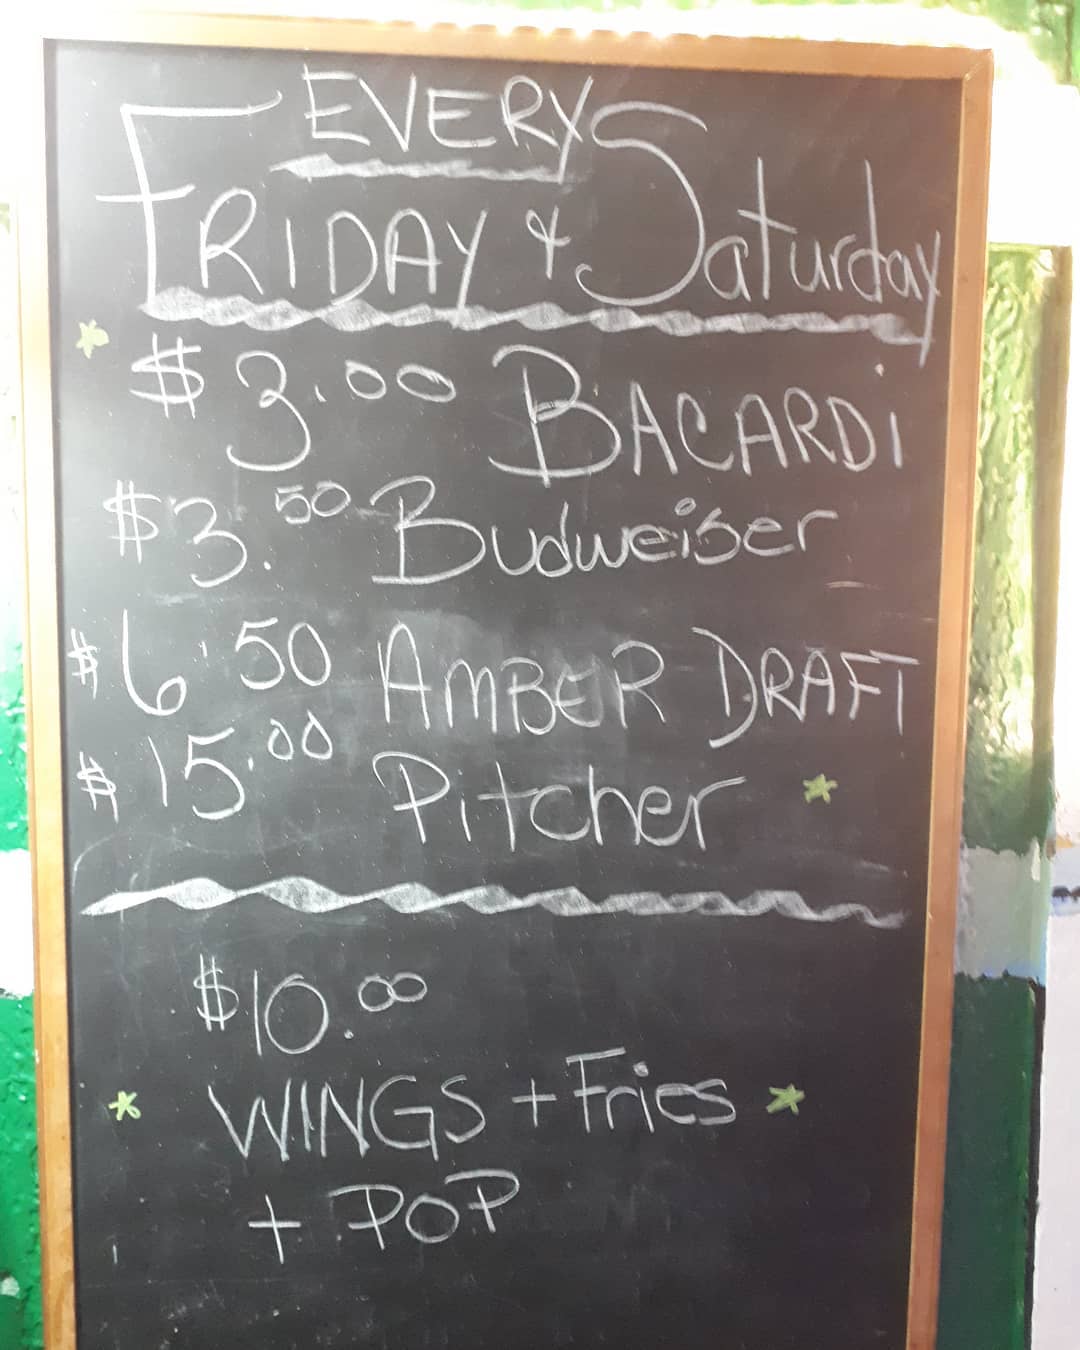 EVERY
FRIDAY & Saturday
$3.00 BACARDi
$3.50 Budweiser
$6.50 AMBER DRAFT
$15.00 Pitcher
$10.00
WINGS + Fries
+ POP